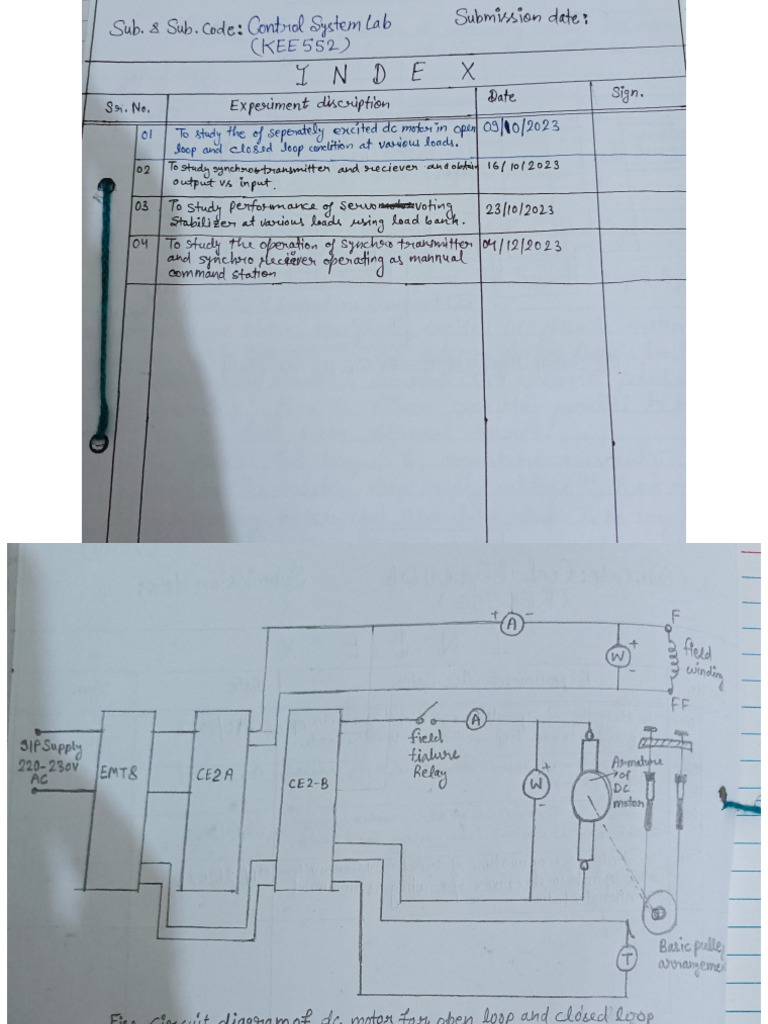 Sub. & Sub. Code: Control System Lab
(KEE552)
Submission date:
INDEX
Sr. No. Experiment discription Date Sign.
01 To study the of seperately excited dc motor in open 09/10/2023
loop and closed loop condition at various loads.
02 To study synchros transmitter and reciever and obtain 16/10/2023
output vs input.
03 To study performance of servo voting 23/10/2023
Stabilizer at various loads using load bank.
04 To study the operation of synchro transmitter 04/12/2023
and synchro reciever operating as mannual
command station
+ A -
F
W
+
-
field
winding
FF
SIP Supply
220-230V
AC
EMT8
CE2A
CE2-B
field
failure
Relay
A
W
+
-
Armature
of
DC
motor
T
Basic pulley
arrangement
Fig. Circuit diagram of dc motor for open loop and closed loop